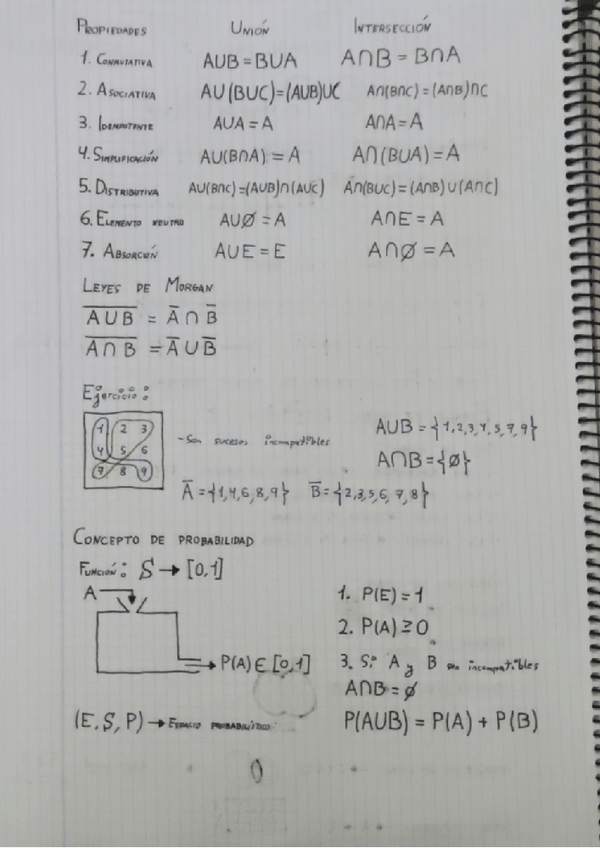 PROPIEDADES UNIÓN INTERSECCIÓN
1. CONMUTATIVA AUB = BUA A∩B = B∩A
2. ASOCIATIVA AU(BUC)=(AUB)UC A∩(B∩C)=(A∩B)∩C
3. IDEMPOTENTE AUA = A A∩A = A
4. SIMPLIFICACIÓN AU(B∩A) = A A∩(BUA) = A
5. DISTRIBUTIVA AU(B∩C)=(AUB)∩(AUC) A∩(BUC)=(A∩B)U(A∩C)
6. ELEMENTO NEUTRO AUØ = A A∩E = A
7. ABSORCIÓN AUE = E A∩Ø = A
LEYES DE MORGAN
A̅U̅B̅ = A̅ ∩ B̅
A̅∩̅B̅ = A̅ U B̅
Ejercicio:
1 2 3
4 5 6
7 8 9
- Son sucesos incompatibles
AUB = {1,2,3,4,5,7,9}
A∩B = {Ø}
A̅ = {1,4,6,8,9} B̅ = {2,3,5,6,7,8}
CONCEPTO DE PROBABILIDAD
FUNCIÓN: S → [0,1]
A
P(A) ∈ [0,1]
(E, S, P) → ESPACIO PROBABILÍSTICO
1. P(E) = 1
2. P(A) ≥ 0
3. Si A y B son incompatibles
A∩B = Ø
P(AUB) = P(A) + P(B)